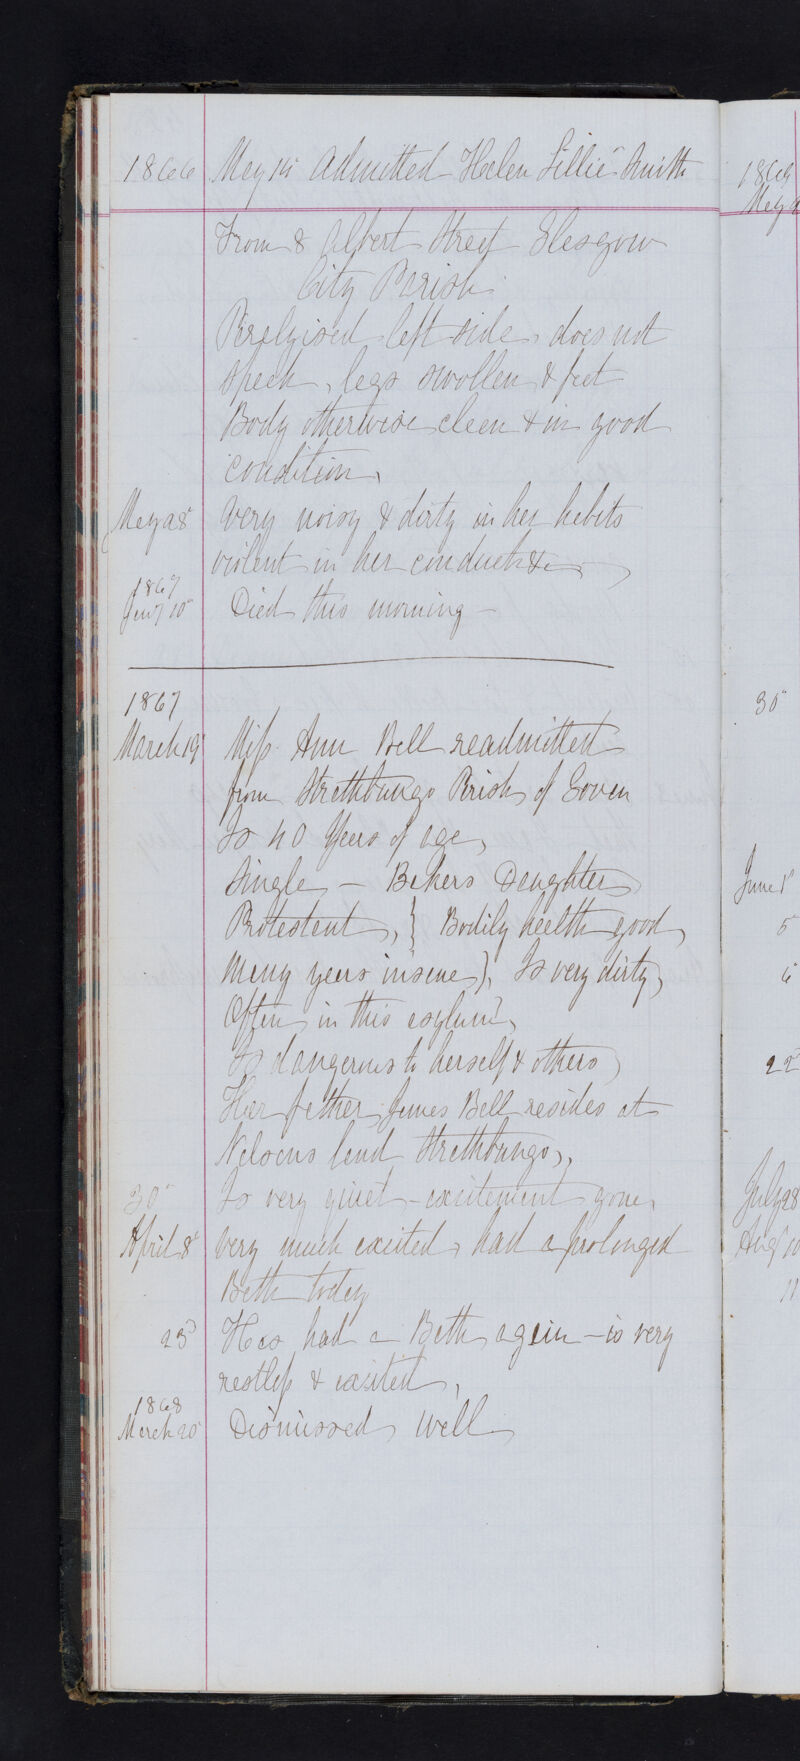 1866 May 14 Admitted Helen Lillie Smith
From 8 Albert Street Glasgow
City Parish
Paralyised left side, does not
speak, legs swollen & feet
Body otherwise clean & in good
condition,
May 28 Very noisy & dirty in her habits
violent in her conduct &c
1867
Jany 10 Died this morning
1867
March 19 Miss Ann Bell readmitted
from Strathbungo Parish of Govan
Is 40 Years of age,
Single — Bakers Daughter
Protestant, } Bodily health good,
Many years insane }, Is very dirty,
Often in this asylum,
Is dangerous to herself & others
Her father James Bell resides at
Nelsons land Strathbungo,
30 Is very quiet - excitement gone,
April 8 Very much excited, had a prolonged
Bath today
23d Has had a Bath again - is very
restless & excited,
1868
March 20 Dismissed Well
1869
May
30
June 1
5
6
22
July 28
Augt 10
11